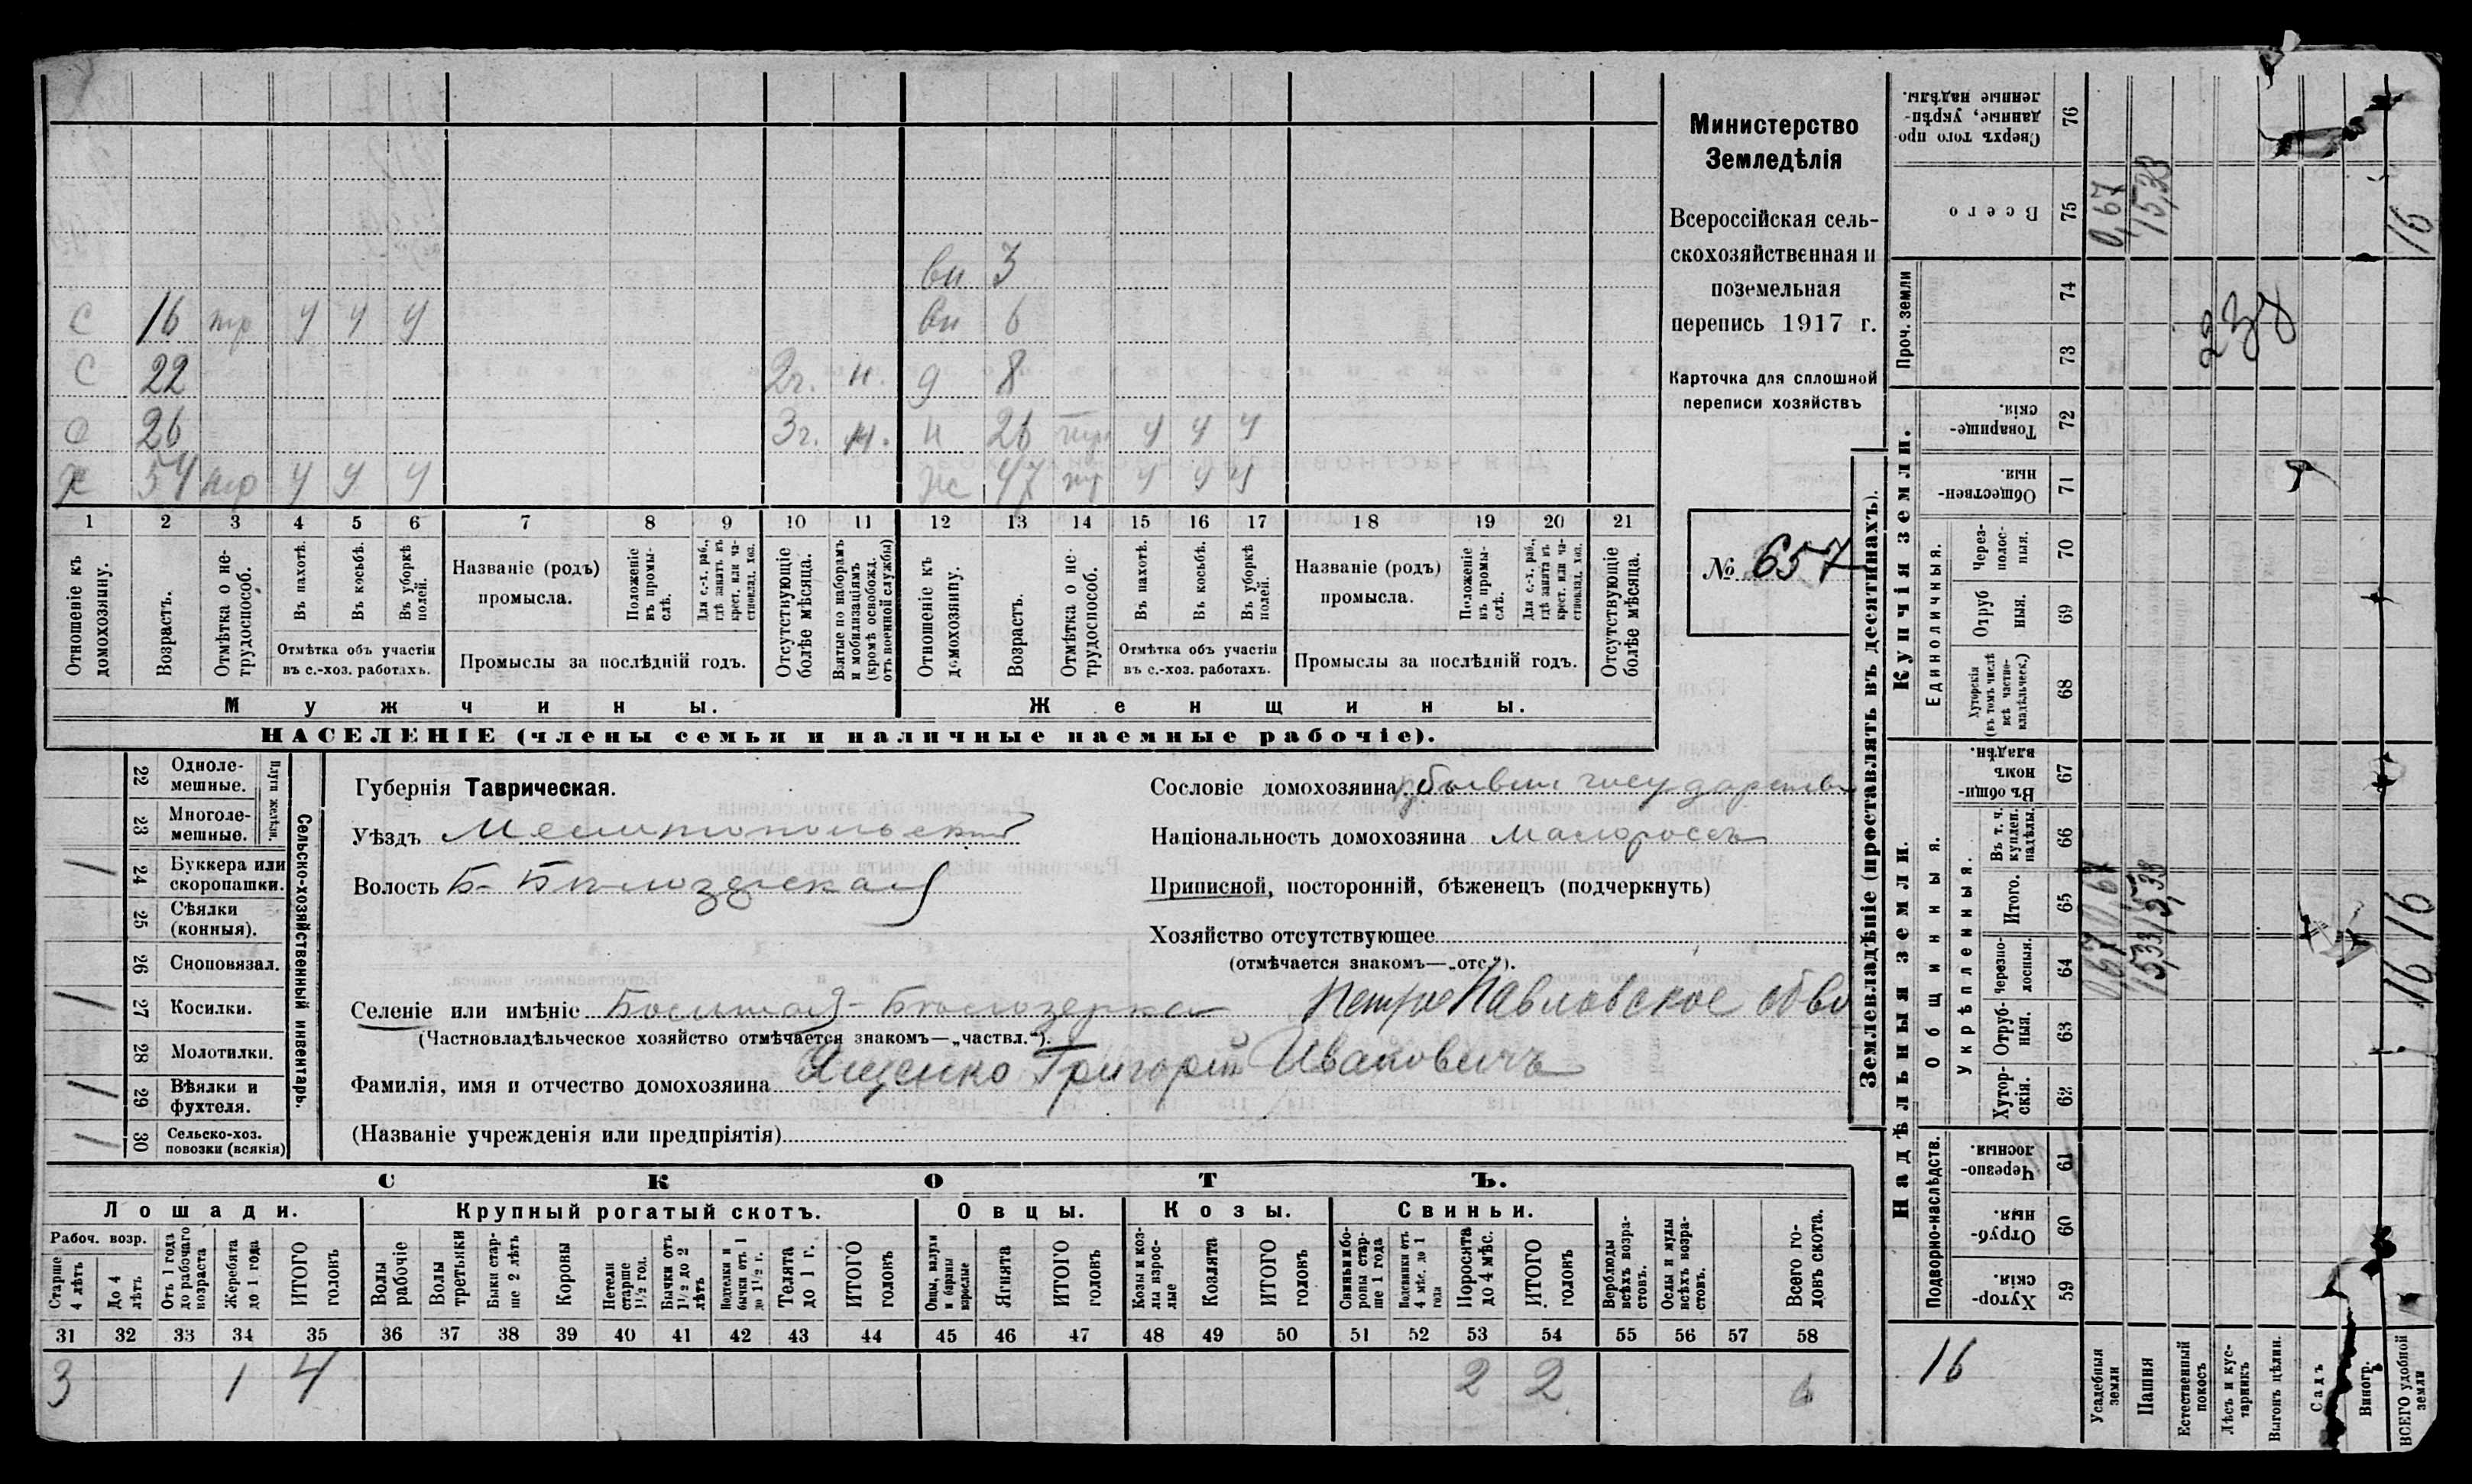 вн 3
С 16 тр у у у вн 6
С 22 2г. н. д 8
С 26 3г. н. н 26 тр у у у
Х 54 тр у у у ж 47 тр у у у
1 2 3 4 5 6 7 8 9 10 11 12 13 14 15 16 17 18 19 20 21
Отношеніе къ домохозяину.
Возрастъ.
Отмѣтка о нетрудоспособ.
Въ пахотѣ.
Въ косьбѣ.
Въ уборкѣ полей.
Отмѣтка объ участіи въ с.-хоз. работахъ.
Названіе (родъ) промысла.
Положеніе въ промыслѣ.
Для с.-х. раб., гдѣ занятъ въ крест. или частновлад. хоз.
Промыслы за послѣдній годъ.
Отсутствующіе болѣе мѣсяца.
Взятые по наборамъ и мобилизаціямъ (кромѣ освобожд. отъ военной службы)
Отношеніе къ домохозяину.
Возрастъ.
Отмѣтка о нетрудоспособ.
Въ пахотѣ.
Въ косьбѣ.
Въ уборкѣ полей.
Отмѣтка объ участіи въ с.-хоз. работахъ.
Названіе (родъ) промысла.
Положеніе въ промыслѣ.
Для с.-х. раб., гдѣ занята въ крест. или частновлад. хоз.
Промыслы за послѣдній годъ.
Отсутствующіе болѣе мѣсяца.
Мужчины. Женщины.
НАСЕЛЕНІЕ (члены семьи и наличные наемные рабочіе).
Министерство
Земледѣлія
Всероссійская сель-
скохозяйственная и
поземельная
перепись 1917 г.
Карточка для сплошной
переписи хозяйствъ
№ 657
Сельско-хозяйственный инвентарь.
Плуги желѣзн.
22 Однолемешные.
23 Многолемешные.
1 24 Буккера или скоропашки.
25 Сѣялки (конныя).
26 Сноповязал.
1 27 Косилки.
28 Молотилки.
1 29 Вѣялки и фухтеля.
1 30 Сельско-хоз. повозки (всякія)
Губернія Таврическая.
Уѣздъ Мелитопольскій
Волость Б- Бѣлозерская
Селеніе или имѣніе Большая-Бѣлозерка Петро Павловское обво
(Частновладѣльческое хозяйство отмѣчается знакомъ—„частвл.").
Фамилія, имя и отчество домохозяина Ященко Григорій Ивановичъ
(Названіе учрежденія или предпріятія)
Сословіе домохозяина бывш государств
Національность домохозяина малороссъ
Приписной, посторонній, бѣженецъ (подчеркнуть)
Хозяйство отсутствующее
(отмѣчается знакомъ—„отс.").
СКОТЪ.
Лошади. Крупный рогатый скотъ. Овцы. Козы. Свиньи.
Рабоч. возр.
Старше 4 лѣтъ
До 4 лѣтъ
Отъ 1 года до рабочаго возраста
Жеребята до 1 года
ИТОГО головъ
Волы рабочіе
Волы третьяки
Быки старше 2 лѣтъ
Коровы
Нетели старше 1½ год.
Бычки отъ 1½ до 2 лѣтъ
Подтелки и бычки отъ 1 до 1½ г.
Телята до 1 г.
ИТОГО головъ
Овцы, валухи и бараны взрослые
Ягнята
ИТОГО головъ
Козы и козлы взрослые
Козлята
ИТОГО головъ
Свиньи и боровы старше 1 года
Подсвинки отъ 4 мѣс. до 1 года
Поросята до 4 мѣс.
ИТОГО головъ
Верблюды всѣхъ возрастовъ.
Ослы и мулы всѣхъ возрастовъ.
Всего головъ скота.
31 32 33 34 35 36 37 38 39 40 41 42 43 44 45 46 47 48 49 50 51 52 53 54 55 56 57 58
3 1 4 2 2 6
Землевладѣніе (проставлять въ десятинахъ).
Надѣльныя земли. Купчія земли. Проч. земли
Подворно-наслѣдств.
Общинныя.
Укрѣпленныя.
Единоличныя.
Хуторскія. 59
Отрубныя. 60
Черезполосныя. 61
Хуторскія. 62
Отрубныя. 63
Черезполосныя. 64
Итого. 65
Въ т. ч. куплен. надѣлы. 66
Въ общинномъ владѣн. 67
Хуторскія (въ томъ числѣ всѣ частновладѣльчес.) 68
Отрубныя. 69
Черезполосныя. 70
Общественныя. 71
Товарищескія. 72
73
74
Всего 75
Сверхъ того проданные, укрѣпленные надѣлы. 76
16
Усадебныя земли 0,67 0,67 0,67
Пашня 15,33 15,33 15,33
Естественный покосъ
Лѣсъ и кустарникъ
Выгонъ цѣлин.
Садъ
Виногр.
ВСЕГО удобной земли 16 16 16